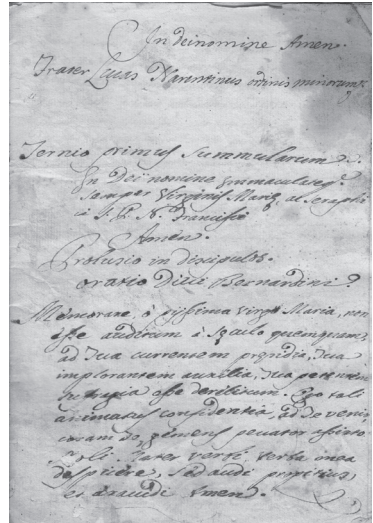 In dei nomine Amen.
Frater Lucas Narentinus ordinis minorum
Ternio primus summularum.
In Dei nomine Immaculateq.
semper Virginis Marię, ac Seraphi
ci S. P. N. Francisci
Amen.
Prolusio in discipulos.
oratio Divi Bernardini
Memorare, ô pijssima Virgo Maria, non
esse auditum â sęculo quemquam,
ad tua currentem pręsidia, tua
implorantem auxilia, tua petentem
sufragia esse derelictum. Ego tali
animatus confidentia, ad te venio,
coram te gemens pecator assisto
Noli Mater verbi verba mea
despicere, sed audi propitius,
et exaudi Amen.